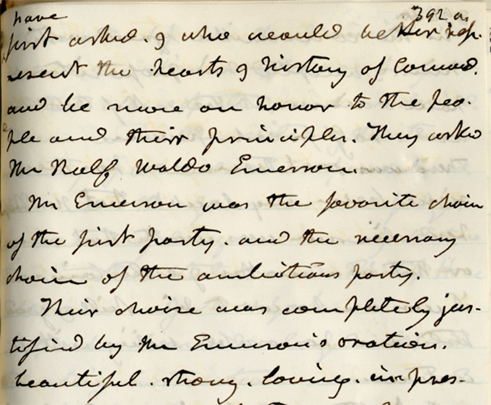 have
392 a
first asked. & who would better rep-
resent the hearts & history of Concord.
and be more an honor to the peo-
ple and their principles. They asked
Mr Ralf Waldo Emerson.
Mr Emerson was the favorite choice
of the first party. and the necessary
choice of the ambitious party.
Their choice was completely jus-
tified by Mr Emerson's oration.
beautiful. strong. loving. impres-